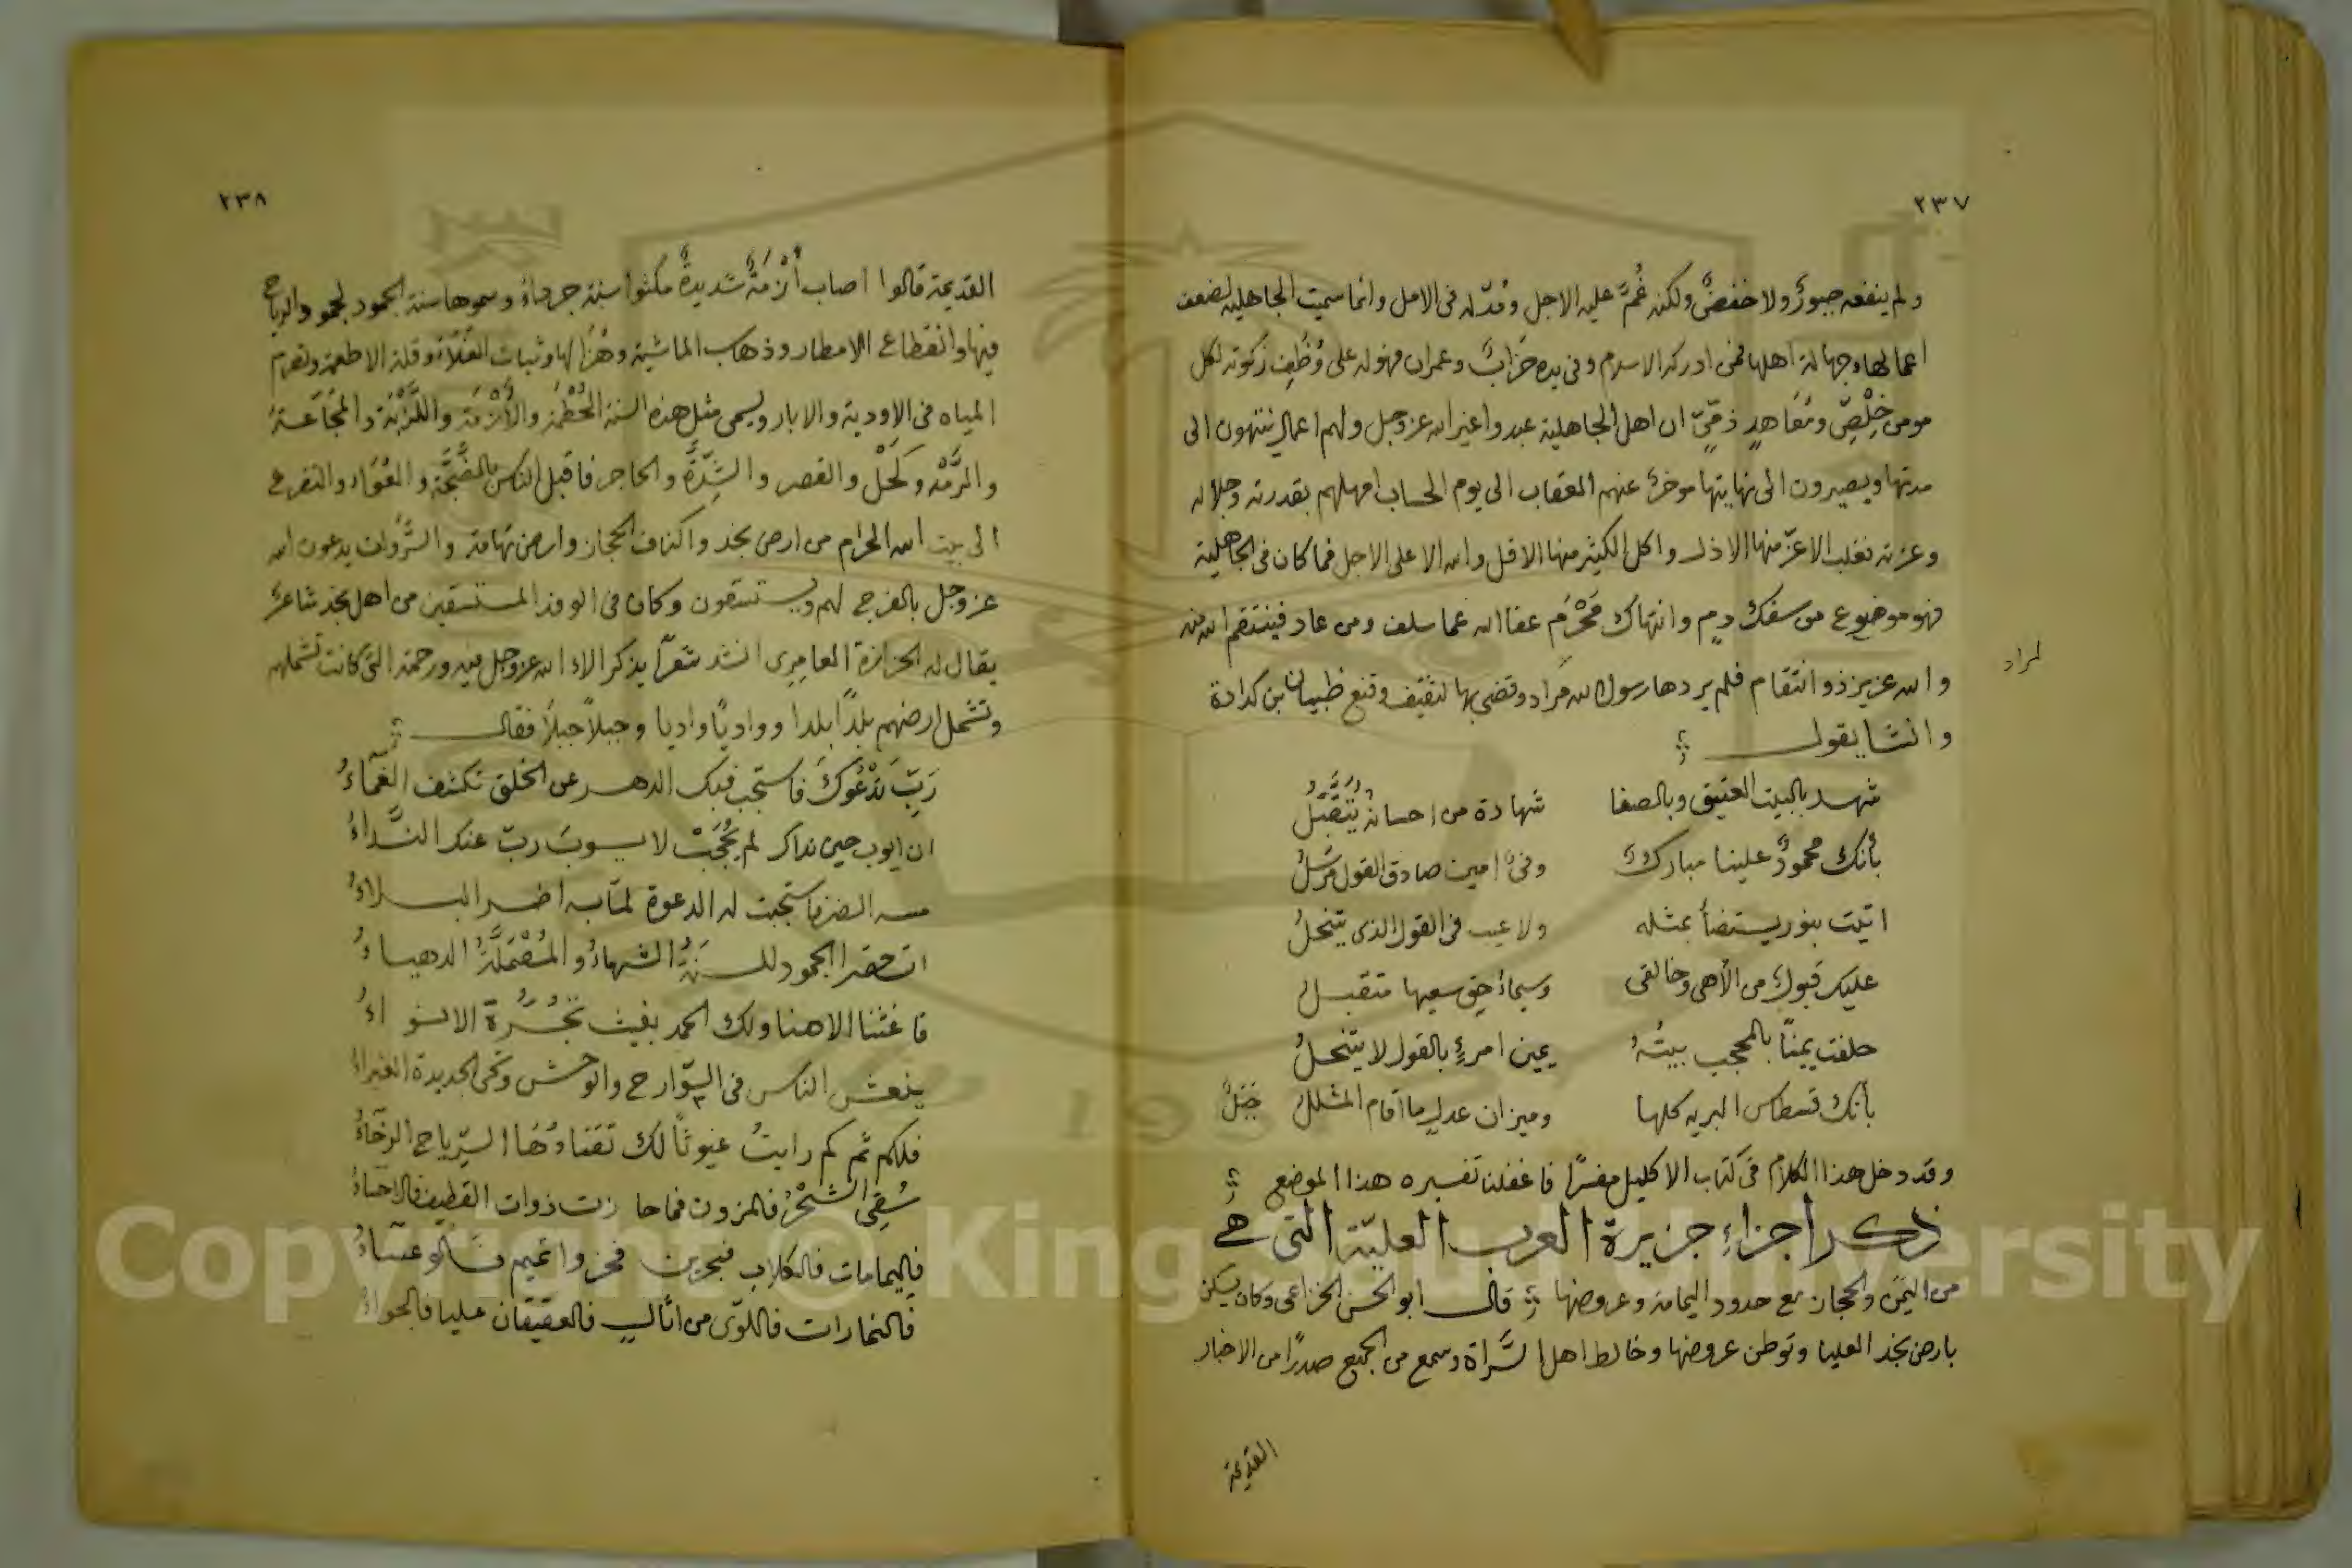 ٢٣٧
ولم ينفعه جبورٌ ولا خفضٌ ولكنه غُمَّ عليه الاجل ومُدّ له فى الامل وانما سميت الجاهلية لضعف
اعمالها وجهالة اهلها فمن ادركه الاسلام وفى يده خَرَابٌ وعمران فهو له على وُظُفِ زكوته لكل
مومن خِلْصٍّ ومُعَاهدٍ ذمّىّ ان اهل الجاهلية عبدوا غير الله عز وجل ولهم اعمال ينتهون الى
مدتها ويصيرون الى نهايتها موخرٌ عنهم العقاب الى يوم الحساب امهلهم بقدرته وجلاله
وعزته فغلب الاعزّ منها الاذل واكل الكثير منها الاقل والله الاعلى الاجل فما كان فى الجاهلية
فهو موضوع من سفك دمٍ وانتهاك مَحْرَم عفا الله عما سلف ومن عاد فينتقم الله منه
والله عزيز ذو انتقام فلم يردها رسول الله مراد وقضى بها لثقيف وقنع ظبيان بن كدادة
لمراد
وانشا يقول
شهد بالبيت العتيق وبالصفا شهادة من احسانهُ يُتَقَبَّلُ
بأنك محمودٌ علينا مباركٌ وفىٌّ امين صادق القول مُرسَلُ
اتيت بنور يستضأ بمثله ولا عيب فى القول الذى يتنحلُ
عليك قبولٌ من الاهى وخالقى وسيماءُ حقٍ سعيها متقبل
حلفت يمينًا بالمحجب بيتُهُ يمين امرءٍ بالقول لا يتنحلُ
بأنك قسطاس البريه كلها وميزان عدلٍ ما اقام المشلل جَبَلٌ
وقد دخل هذا الكلام فى كتاب الاكليل مفسرًا فاغفلنا تفسيره هذا الموضع
ذكر اجزاء جزيرة العرب العليّة التى هى
من اليَمَن والحجاز مع حدود اليمامة وعروضها قال ابو الحسن الخزاعى وكان يسكن
بارض نجد العليا وتوطن عروضها وخالط اهل السَّراة وسمع من الجميع صدرًا من الاخبار
القديمة
٢٣٨
القديمة قالوا اصاب أَزْمَةٌ شديدةٌ مكثوا سنة جرداءُ وسموها سنة الجمود لجمود الرياح
فيها وانقطاع الامطار وذهاب الماشية وهُزَالها وثبات الغلاء وقلة الاطعمة وتصرم
المياه فى الاودية والابار ويسمى مثل هذه السنة الحُطَمة والأَزْمَة واللَّزْبَة والمَجَاعَة
والرَّمْدَ وكَحْلُ والقصر والشِدَّةَ والحاجر فاقبل الناس بالضَّجَّة والعُوَاء والتضرع
الى بيت الله الحرام من ارض نجد واكناف الحجاز وارض تهامة والسَّرَوات يدعون الله
عز وجل بالفرج لهم ويستسقون وكان فى الوفد المستسقين من اهل نجد شاعرٌ
يقال له الحزازة العامِرِى انشد شعرًا يذكر الاء الله عز وجل فيه ورحمته التى كانت تشملهم
وتشمل ارضهم بلدًا بلدا وواديًا واديا وجبلاً جبلاً فقال
رَبِّ نَدْعُوكَ فاستجب فبك الدهر عن الخلق تكشف الغَمَّاءُ
ان ايوب حين ناداك لم يُحْجَبْ لا يوبَ ربّ عنك النَّداءُ
مسه الضر فاستجبت له الدعوة لمّا به اضر البلاءُ
اتحضر الجمود للسنةُ الشهباءُ والمُصْمَئِلَّةُ الدهياءُ
فاغثنا الاهنا ولك الحمد بغيث تَجُرُّهُ الانواءُ
ينعش الناس فى السّوارح والوحش وتحى الجديدة الغبراءُ
فلكم ثم كم رايتُ غيوثًا لك تقتادُهَا الرّياح الرخاءُ
سُقِى الشّحْرُ فالمزون فما حازت ذوات القطيف فالاحساءُ
فاليمامات فالكلاب فبحرين فحزوا تميم فالوعساءُ
فالنمارات فاللّوى من اثال فالعقيقان عليا فالجواءُ